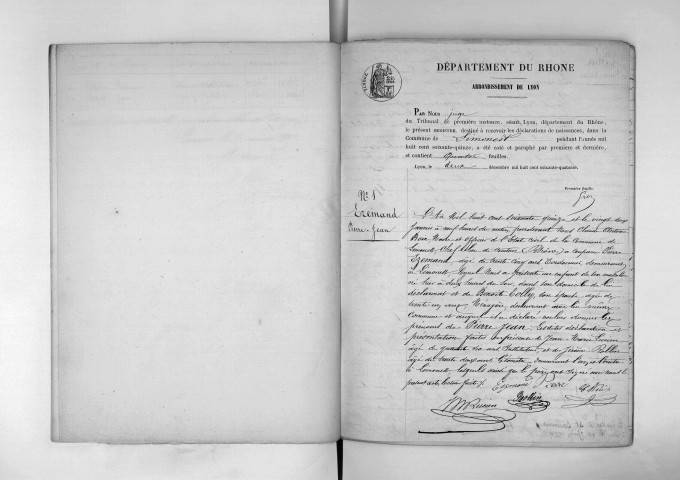 DÉPARTEMENT DU RHONE
ARRONDISSEMENT DE LYON
PAR NOUS juge
du Tribunal de première instance, séant à Lyon, département du Rhône,
le présent nouveau, destiné à recevoir les déclarations de naissances, dans la
Commune de Limonest pendant l'année mil
huit cent soixante-quinze, a été coté et paraphé par première et dernière,
et contient feuilles.
Lyon, le deux décembre mil huit cent soixante-quatorze.
Première feuille
N° 1
Ezemand
Pierre-Jean
L'An Mil huit cent soixante quinze et le vingt deux
Janvier à neuf heures du matin, pardevant Nous Claude
Maire et officier de l'Etat civil de la Commune de
Limonest, Chef-lieu de canton, (Rhône) a comparu Pierre
Ezemand, âgé de trente cinq ans Cordonnier demeurant
à Limonest, lequel Nous a présenté un enfant du sexe masculin
né hier à deux heures du soir, dans son domicile de lui
déclarant et de Benoite Colly, son épouse âgée de
trente un ans Ménagère, demeurant avec lui même
Commune et auquel il a déclaré vouloir donner les
prénoms de Pierre Jean. Lesdites déclaration et
présentation faites en présence de Jean Marie
âgé de quarante six ans Instituteur, et de Jérôme
âgé de trente ans demeurant l'un et l'autre
à Limonest lesquels ainsi que le père ont signé avec nous le
présent acte lecture faite.
Ezemand